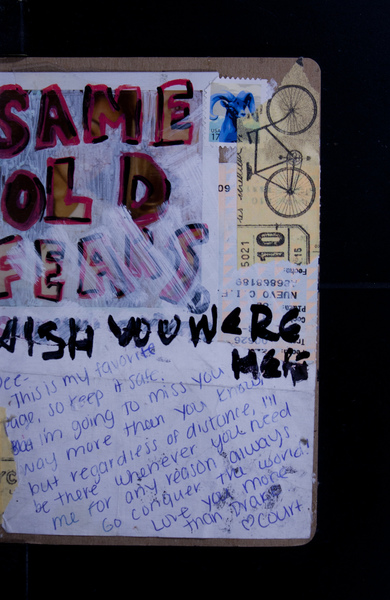 SAME
OLD
FEARS
WISH YOU WERE
HERE
Dee-
This is my favorite
page, so keep it safe.
I'm going to miss you
way more than you know
but regardless of distance, I'll
be there whenever you need
me for any reason always
Go conquer the world!
Love you more
than Drake
♡Court
USA
17
10
5021
15
Fecha
A6868189
NUEVO C.I.F.